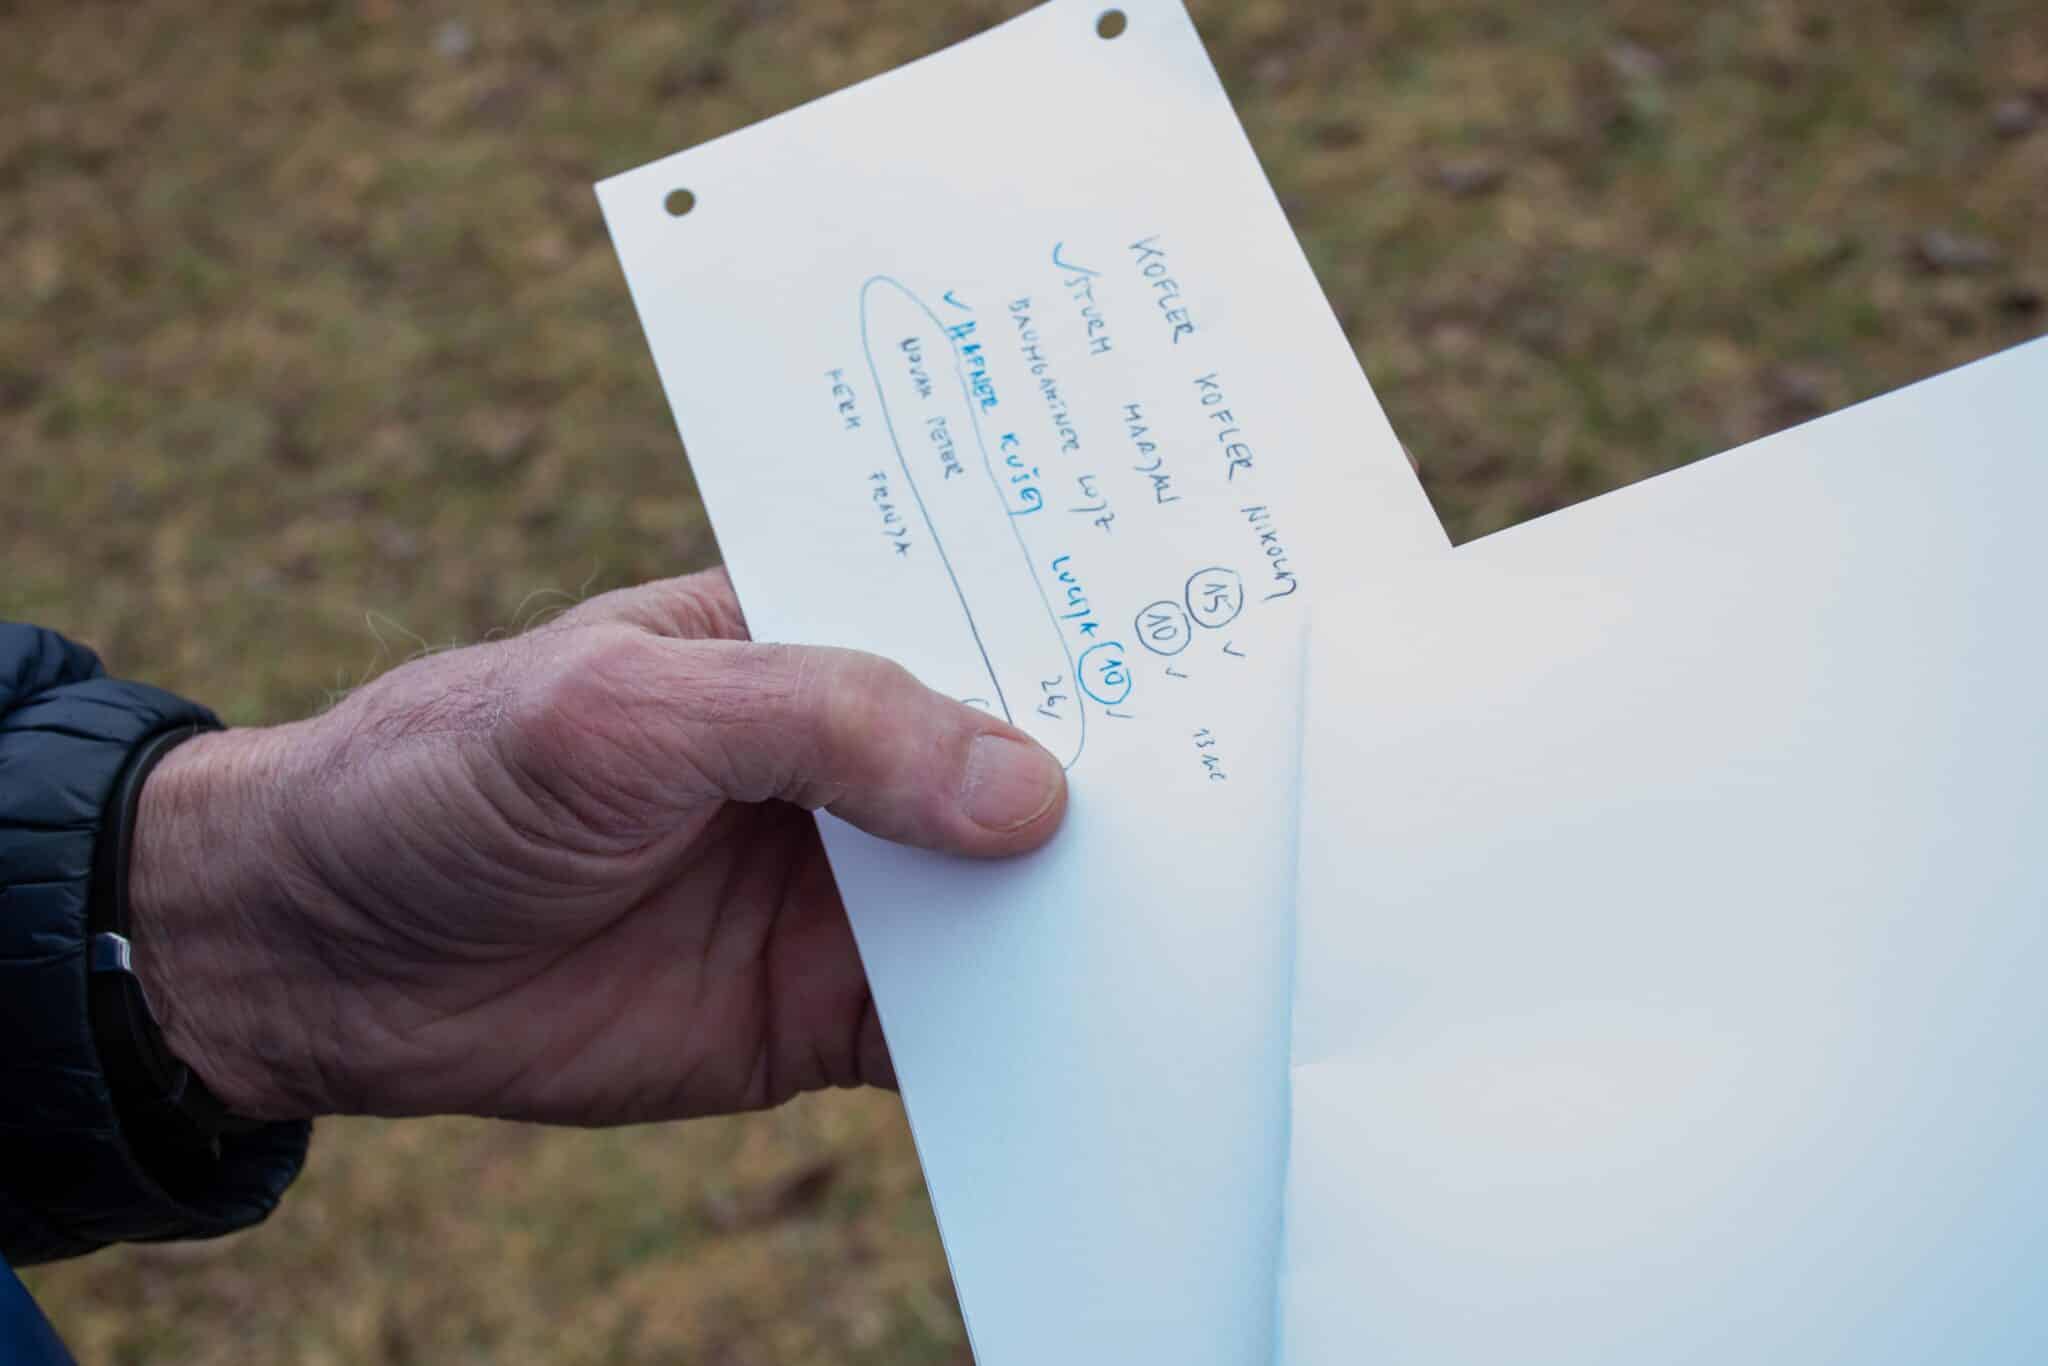 KOFLER KOFLER NIKOLAJ
✓ STURM MARJAN (15) ✓
BAUMGARTNER LOJZ (10) ✓
✓ HAFNER KUŠEJ LUCIJA (10) ✓
NOVAK PETER 26,
FERK FRANJA